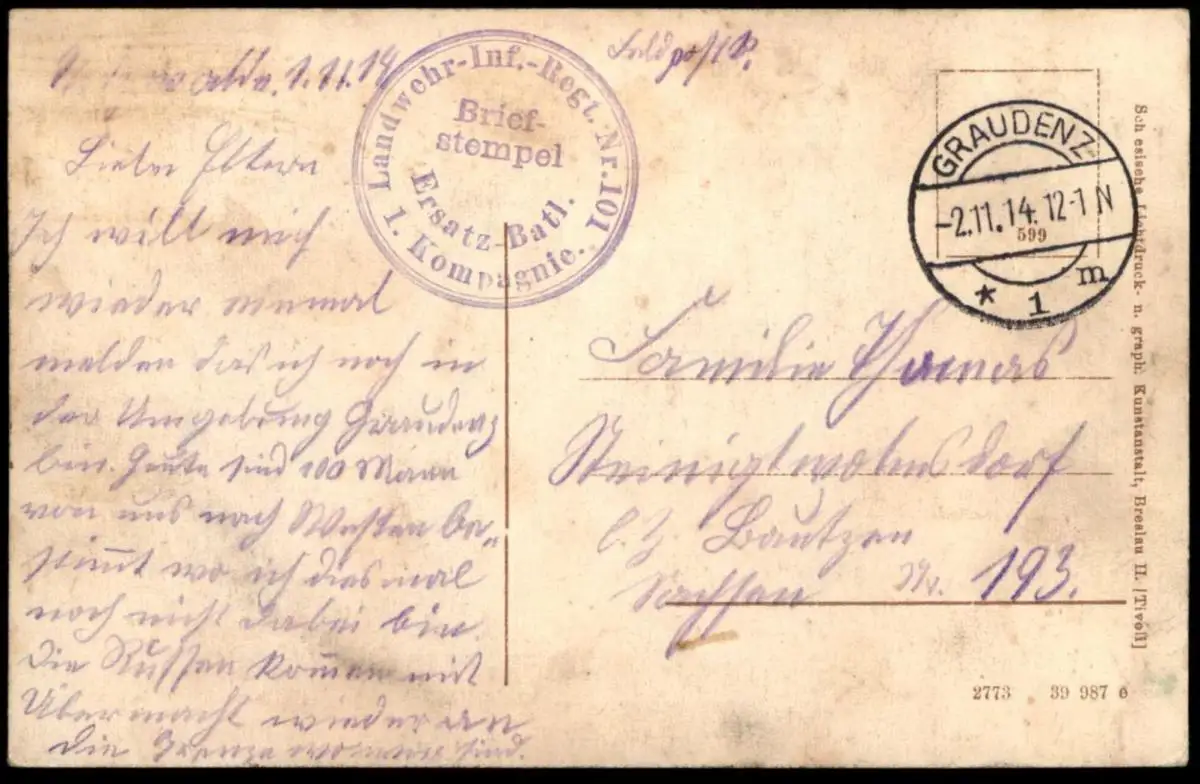 1.11.14
Feldpost K.
Landwehr-Inf.-Regt. Nr. 101
Brief-
stempel
Ersatz-Batl.
1. Kompagnie.
GRAUDENZ
-2.11.14. 12-1 N
* 1 m
599
Liebe Eltern
Ich will mich
wieder einmal
melden das ich noch in
der Umgebung Graudenz
bin. Heute sind 100 Mann
von uns nach Westen be-
stimmt wo ich diesmal
noch nicht dabei bin.
Die Russen kommen mit
Übermacht wieder an
die Grenze wo wir sind.
Familie Thomas
Steinigtwolmsdorf
b. Bautzen
Sachsen Nr. 193.
Sch esische Lichtdruck- u. graph. Kunstanstalt, Breslau II. [Tivoli]
2773 39 987 e